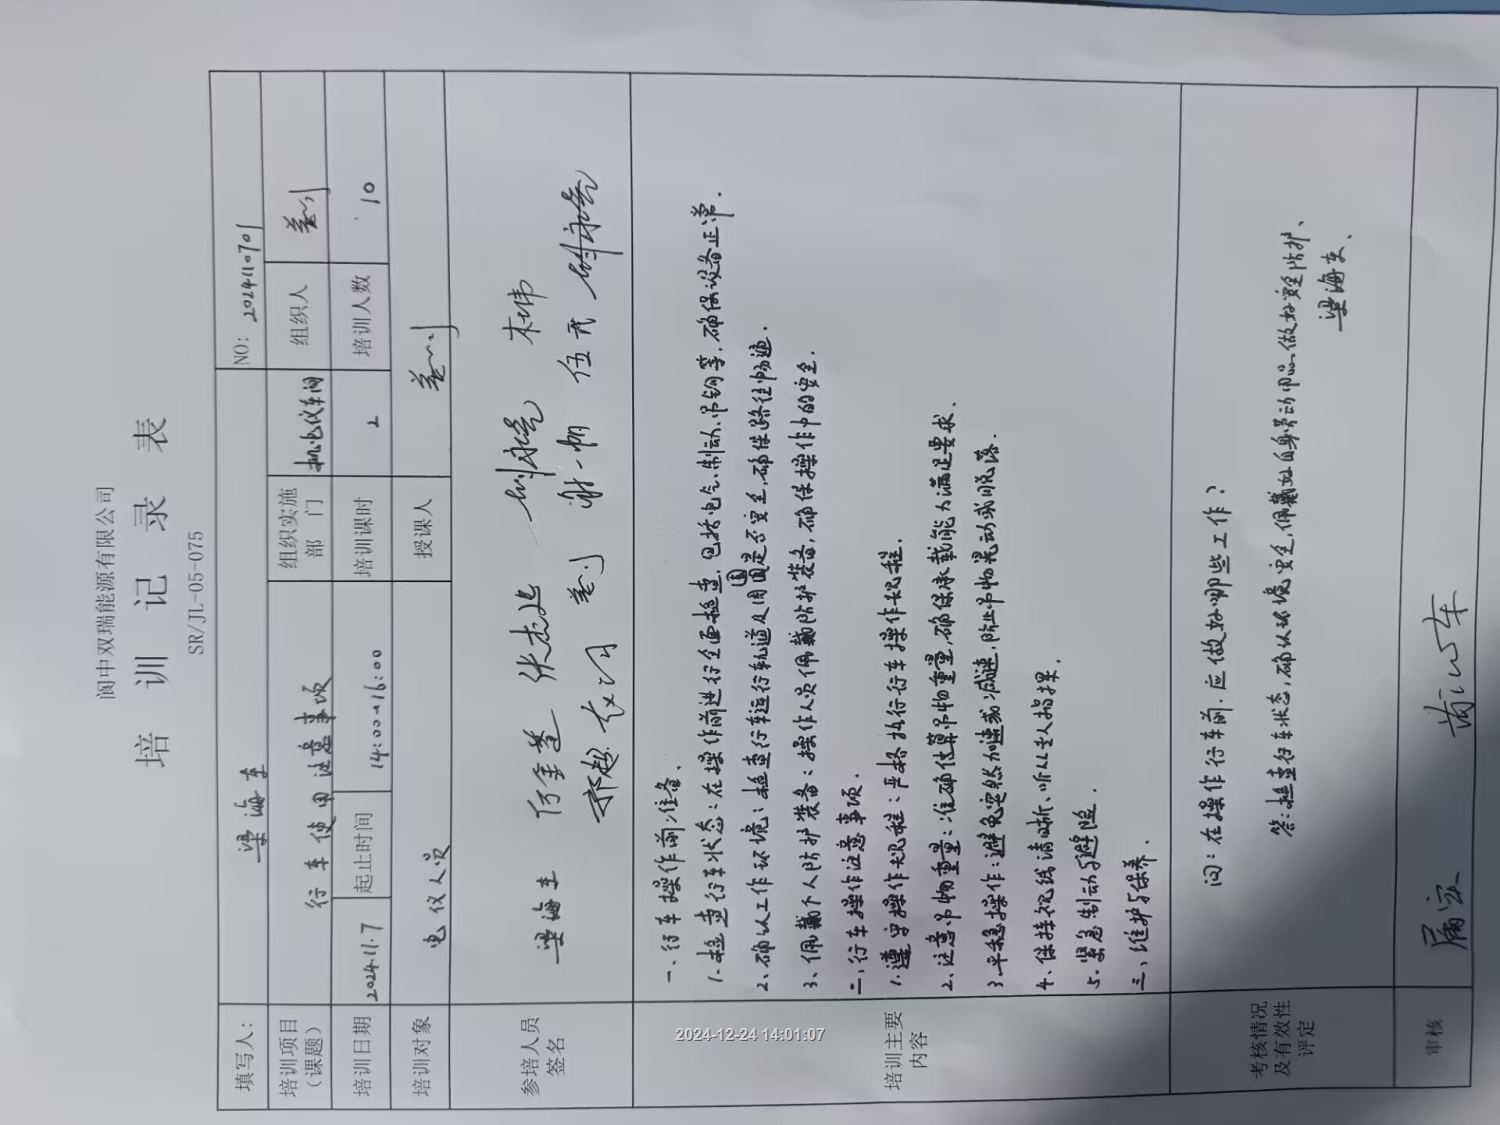 阆中双瑞能源有限公司
培训记录表
SR/JL-05-075
填写人： 梁海东 NO: 2024110701
培训项目（课题） 行车使用注意事项 组织实施部门 机电仪车间 组织人
培训日期 2024.11.7 起止时间 14:00~16:00 培训课时 2 培训人数 10
培训对象 电仪人员 授课人
参培人员签名
梁海东
培训主要内容
一、行车操作前准备.
1.检查行车状态：在操作前进行全面检查，包括电气、制动、吊钩等，确保设备正常.
2、确认工作环境：检查行车运行轨道及周围是否安全，确保路径畅通.
3、佩戴个人防护装备：操作人员佩戴防护装备，确保操作中的安全.
二、行车操作注意事项.
1.遵守操作规程：严格执行行车操作规程.
2、注意吊物重量：准确估算吊物重量，确保承载能力满足要求.
3.平稳操作：避免突然加速或减速，防止吊物晃动或脱落.
4、保持视线清晰、听从专人指挥.
5.紧急制动与避险.
三、维护与保养.
考核情况及有效性评定
问：在操作行车前.应做好哪些工作？
答：检查行车状态，确认环境安全，佩戴好自身劳动用品、做好安全防护、
梁海东、
审核
2024-12-24 14:01:07